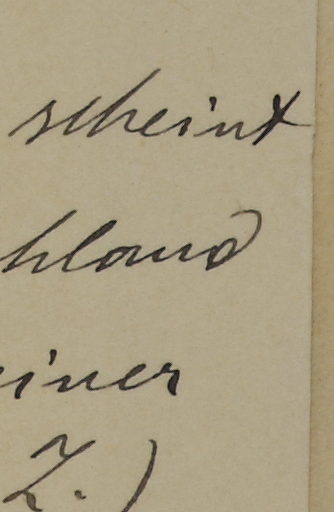 scheint
hland
einer
Z.)